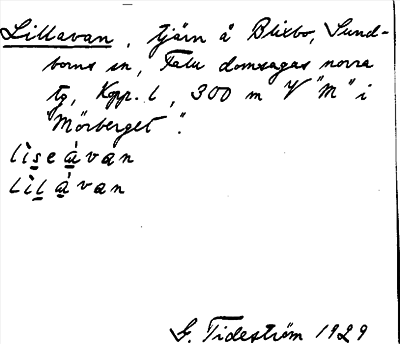 Lillavan, tjärn å Blixbo, Sund-
borns sn, Falu domsagas norra
tg, Kopp. l, 300 m V "M" i
"Mörberget".
lìseàvan
lìlàvan
G. Tideström 1929